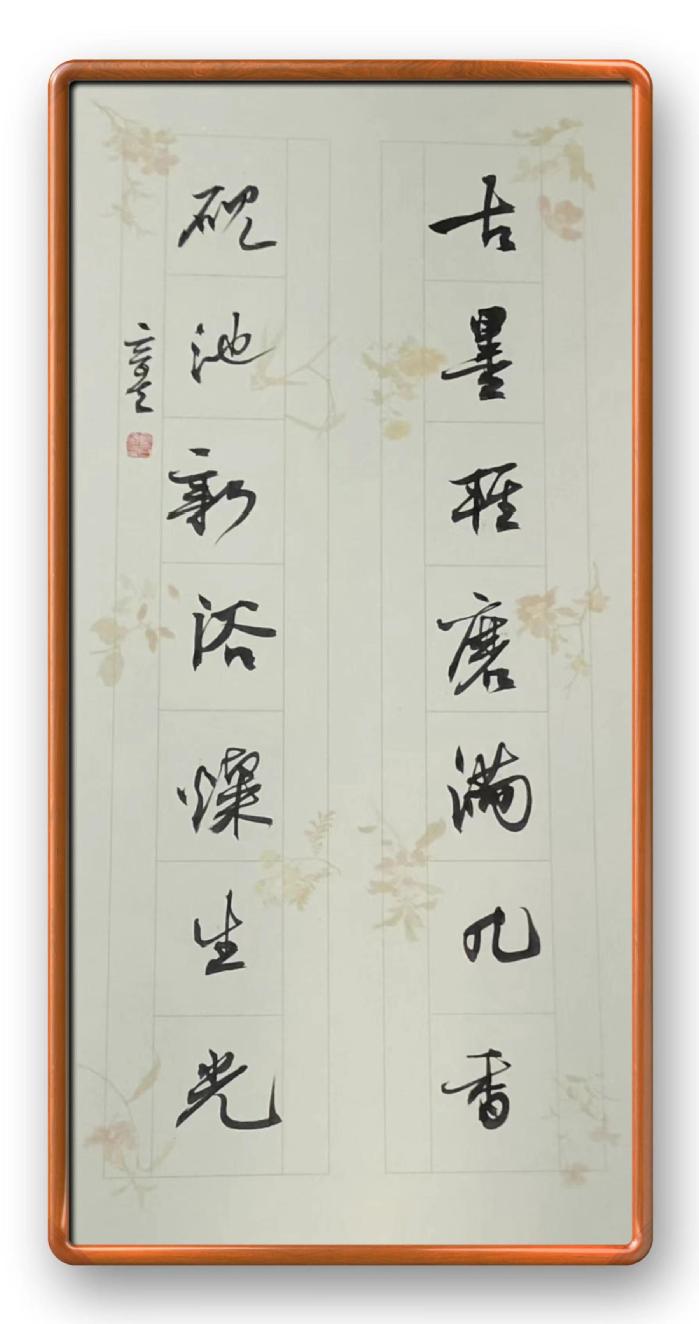 古墨轻磨满几香
砚池新浴灿生光